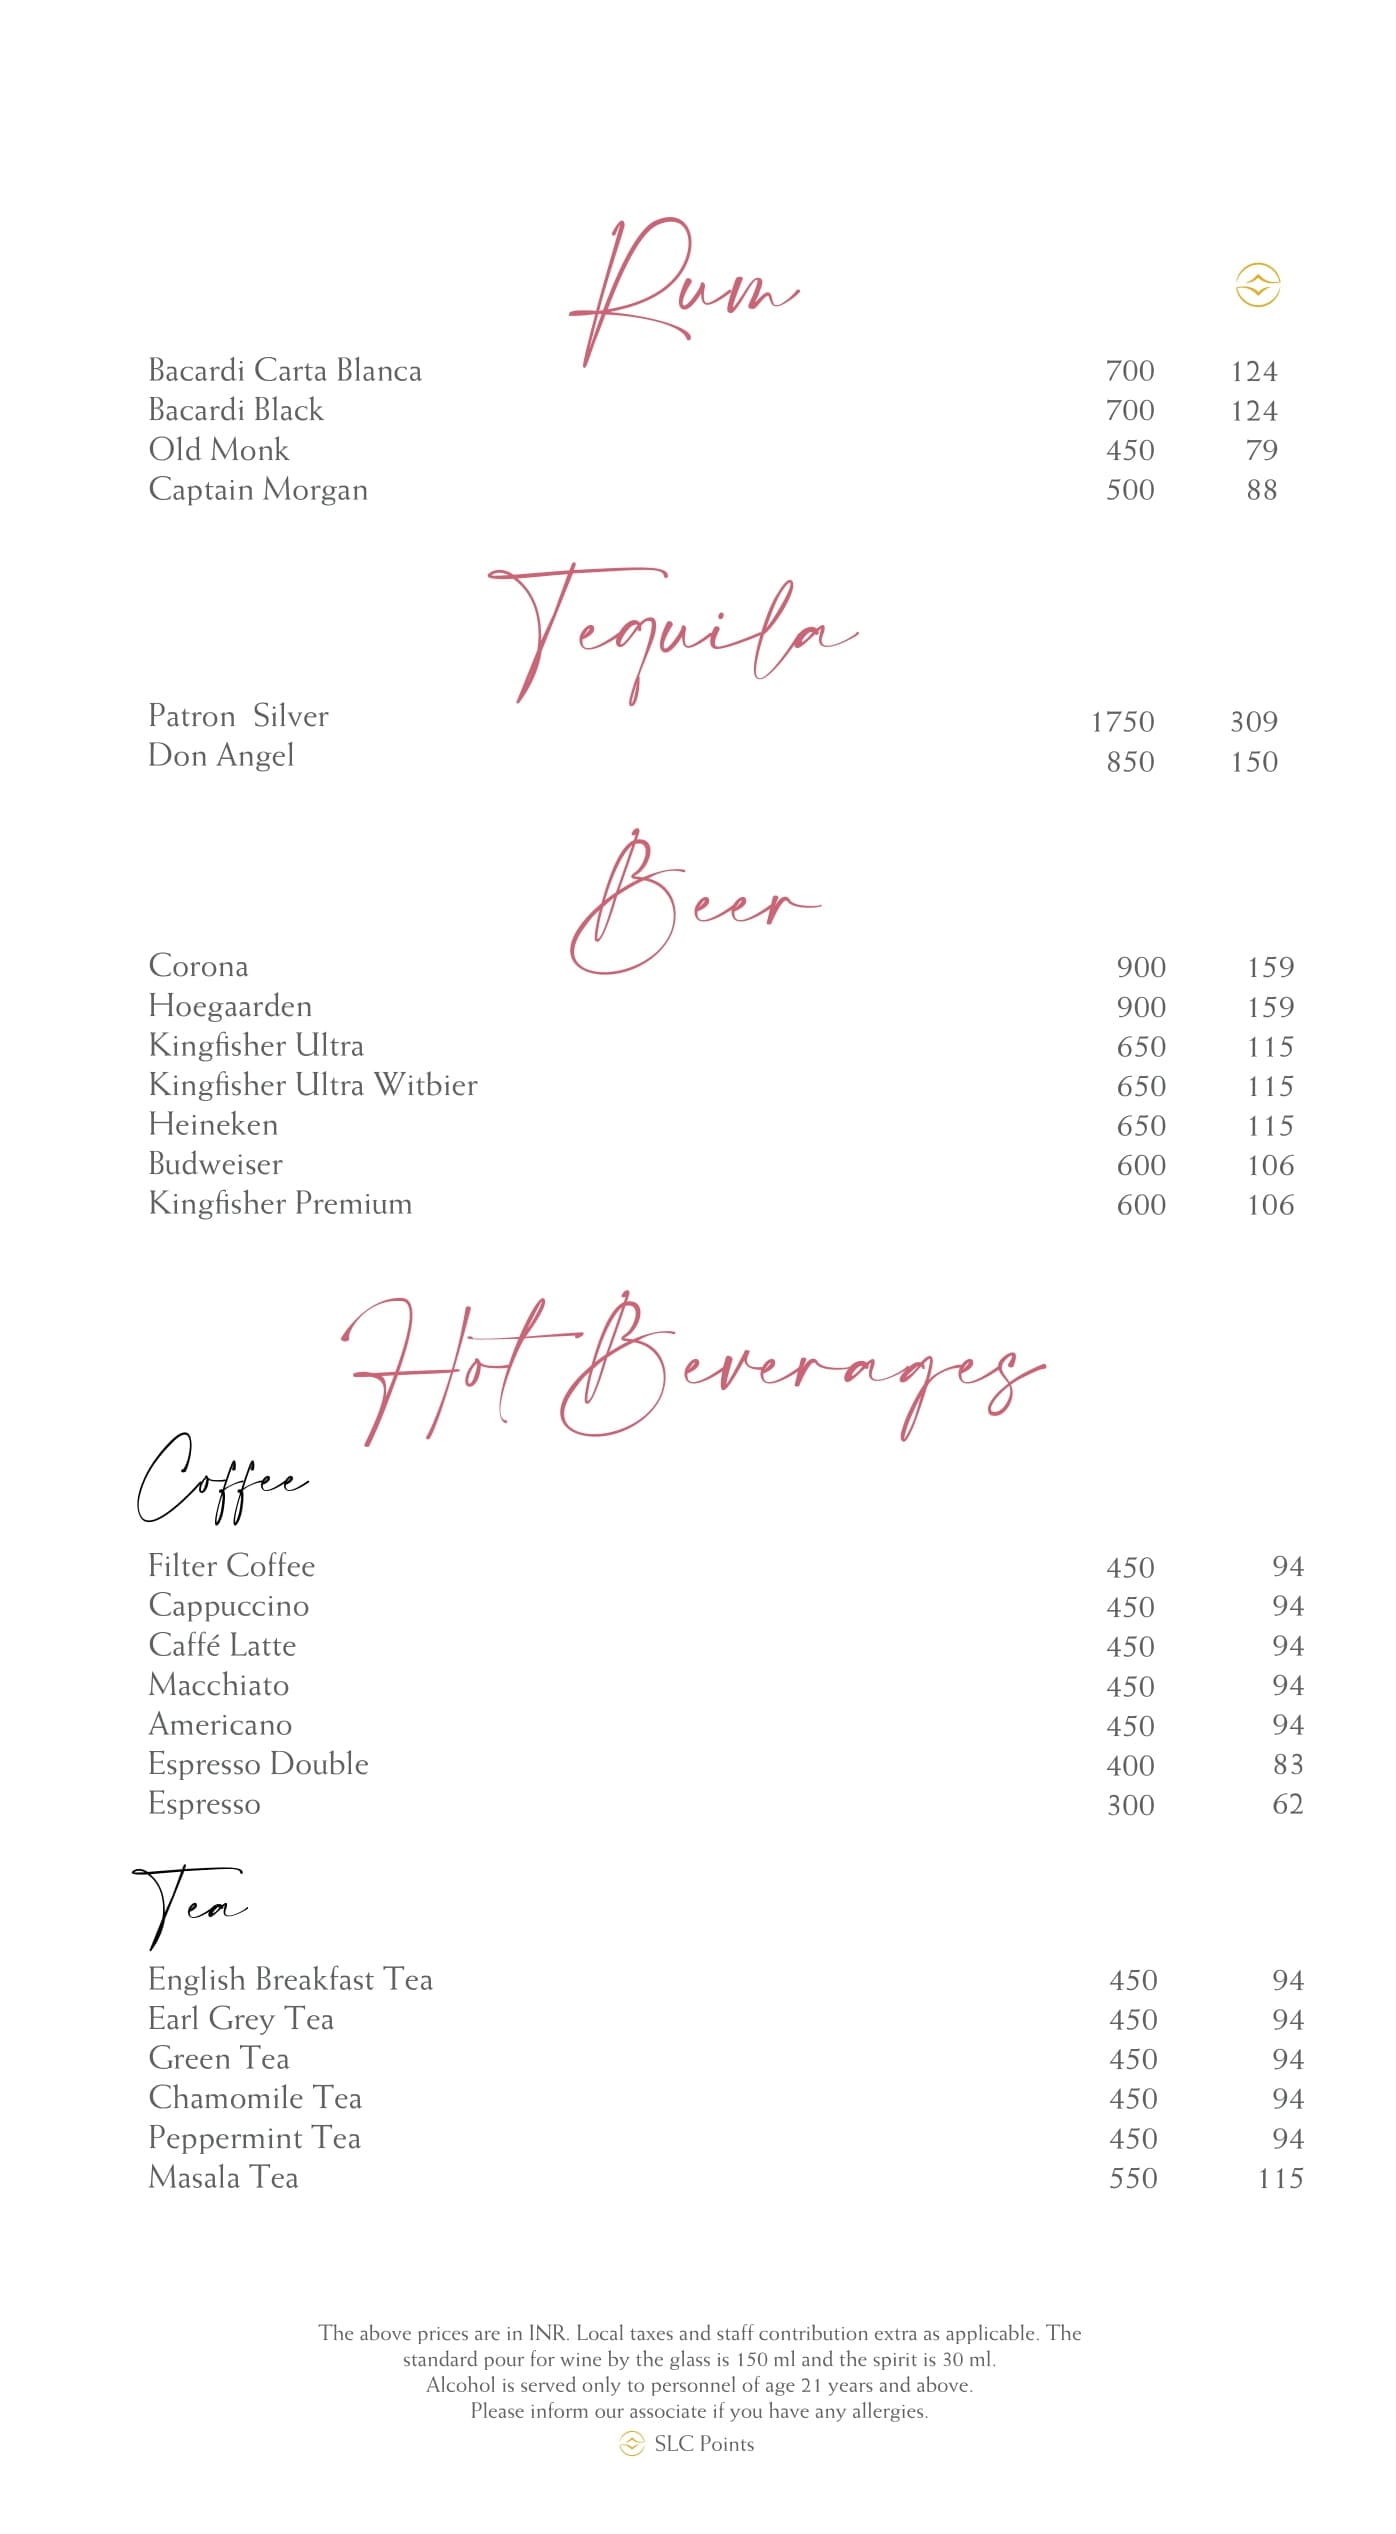 Rum
Bacardi Carta Blanca 700 124
Bacardi Black 700 124
Old Monk 450 79
Captain Morgan 500 88
Tequila
Patron Silver 1750 309
Don Angel 850 150
Beer
Corona 900 159
Hoegaarden 900 159
Kingfisher Ultra 650 115
Kingfisher Ultra Witbier 650 115
Heineken 650 115
Budweiser 600 106
Kingfisher Premium 600 106
Hot Beverages
Coffee
Filter Coffee 450 94
Cappuccino 450 94
Caffé Latte 450 94
Macchiato 450 94
Americano 450 94
Espresso Double 400 83
Espresso 300 62
Tea
English Breakfast Tea 450 94
Earl Grey Tea 450 94
Green Tea 450 94
Chamomile Tea 450 94
Peppermint Tea 450 94
Masala Tea 550 115
The above prices are in INR. Local taxes and staff contribution extra as applicable. The
standard pour for wine by the glass is 150 ml and the spirit is 30 ml.
Alcohol is served only to personnel of age 21 years and above.
Please inform our associate if you have any allergies.
SLC Points